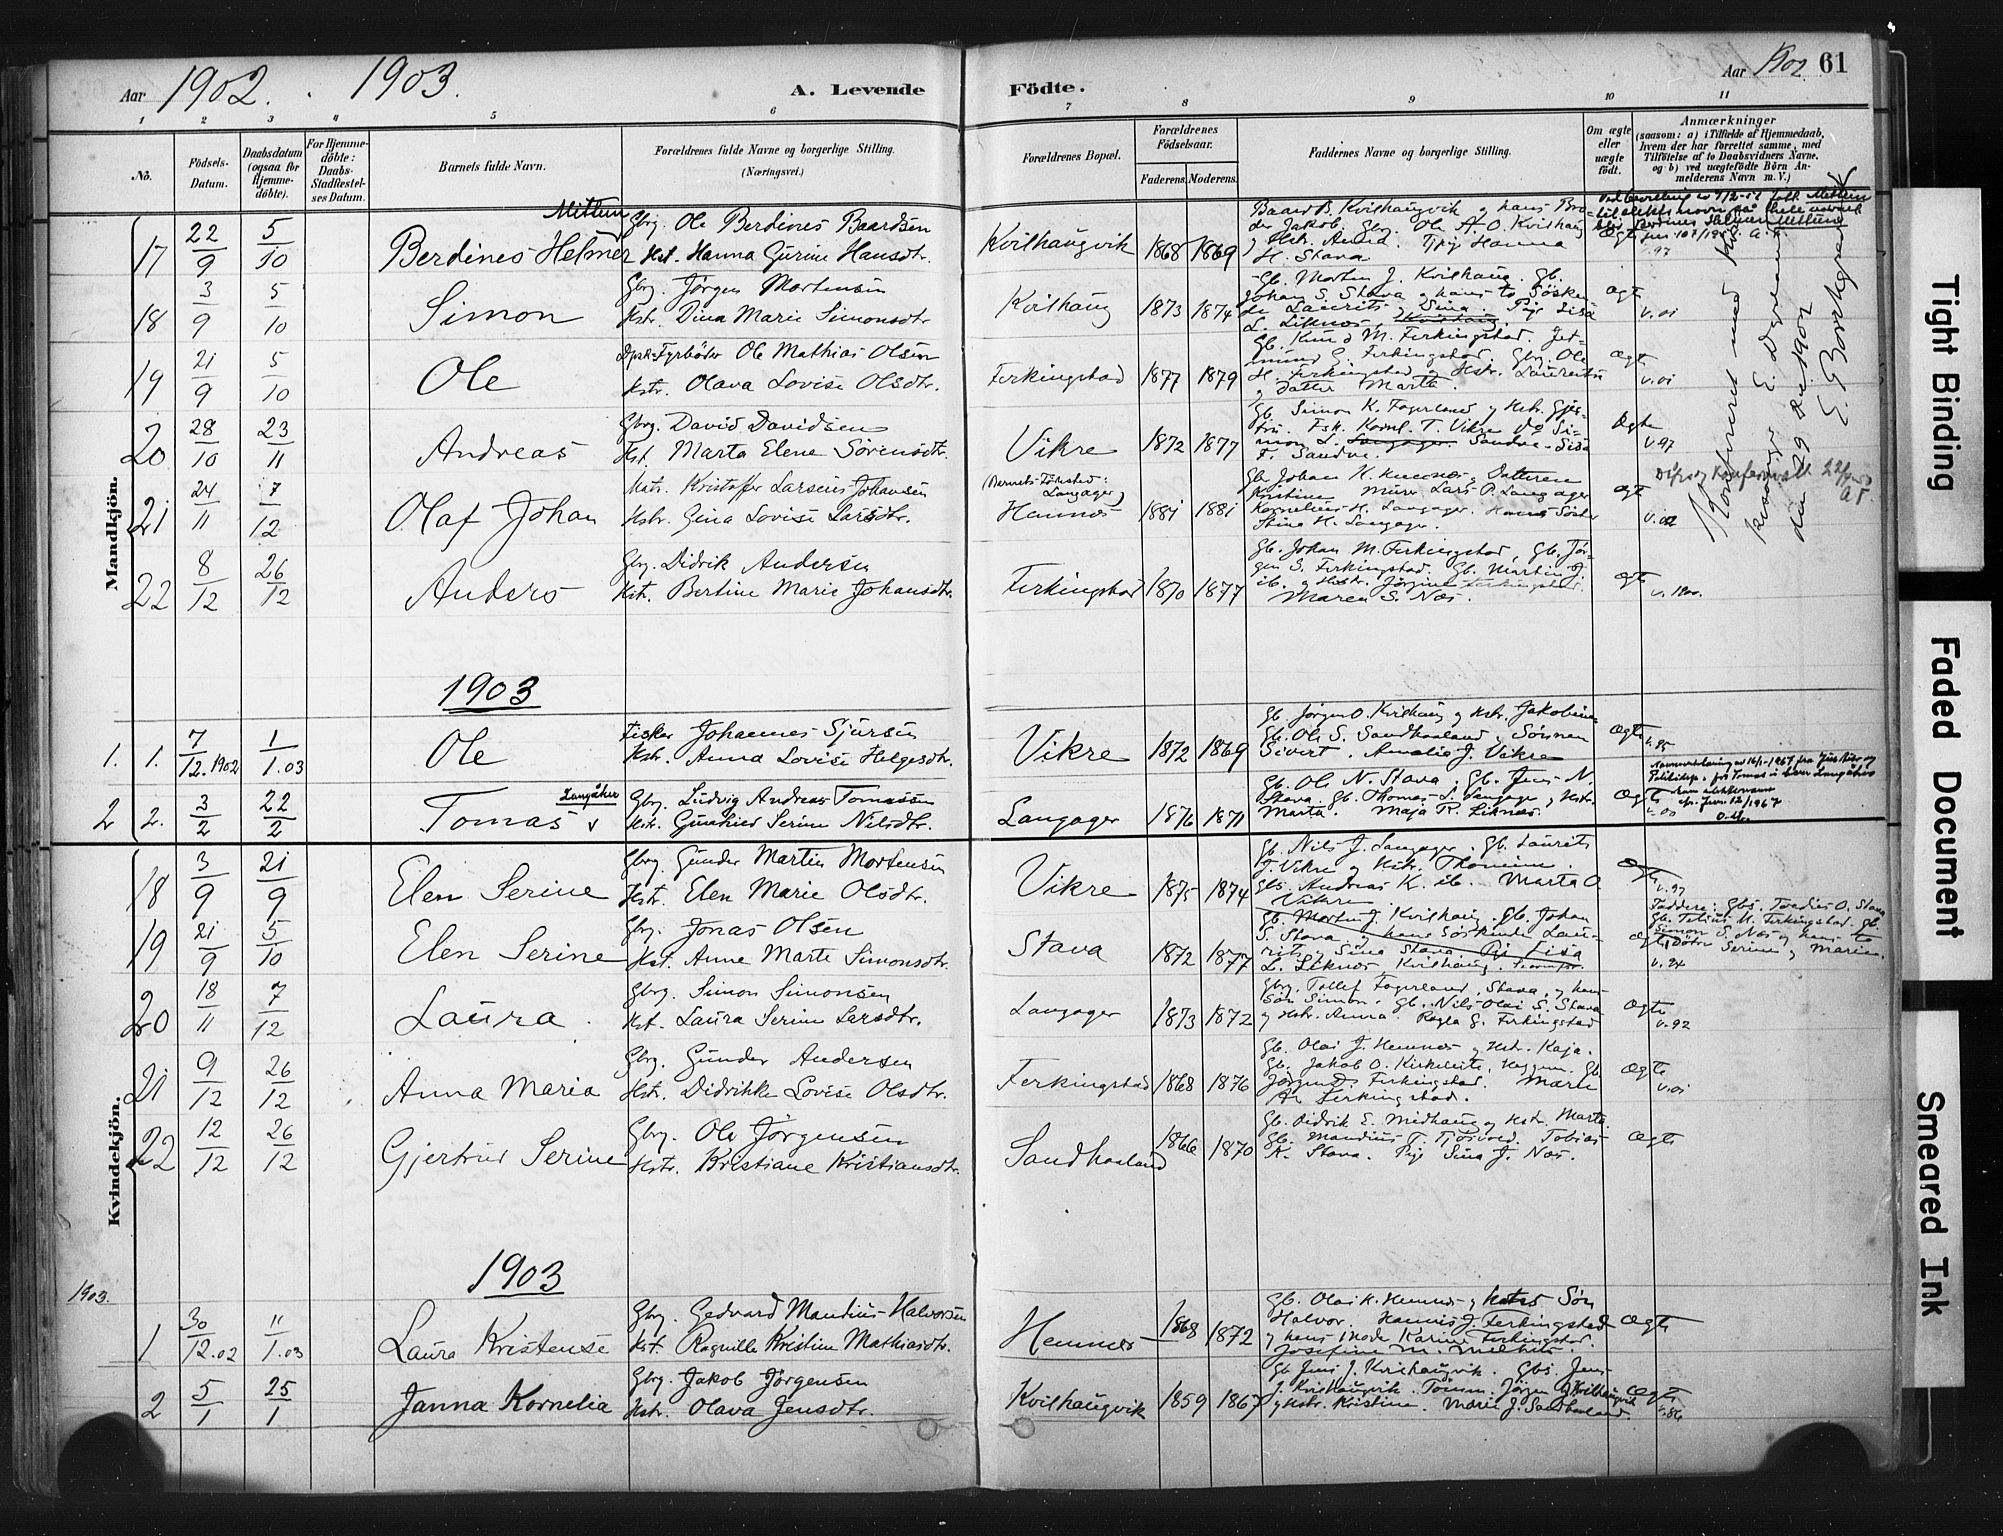 Aar 1902. . 1903.
A. Levende Födte.
Aar 1902 61
1 2 3 4 5 6 7 8 9 10 11
No.
Födsels-Datum.
Daabsdatum (ogsaa for Hjemmedöbte).
For Hjemmedöbte: Daabs-Stadfæstelses Datum.
Barnets fulde Navn.
Forældrenes fulde Navne og borgerlige Stilling.
(Næringsvei.)
Forældrenes Bopæl.
Forældrenes Födselsaar.
Faderens. Moderens.
Faddernes Navne og borgerlige Stilling.
Om ægte eller uægte födt.
Anmærkninger
(saasom: a) i Tilfælde af Hjemmedaab,
hvem der har forrettet samme, med
Tilföielse af to Daabsvidners Navne,
og b) ved uægtefödte Börn Anmelderens Navn m. V.)
Mandkjön.
17 22/9 5/10 Berdines Helmer Mittun
Gbrg. Ole Berdines Baardsen
Hst. Hanna Gurine Hansdtr.
Kvilhaugvik 1868 1869
Baard B. Kvilhaugvik og hans Bro-
der Jakob. Gbrg. Ole A. O. Kvilhaug
og Hstr. Anna. Pige Hanna
H. Stava
Ægte
v. 97
18 3/9 5/10 Simon
Gbrg. Jörgen Mortensen
Hstr. Dina Marie Simonsdtr.
Kvilhaug 1873 1874
Gb. Morten J. Kvilhaug. Gb.
Johan S. Stava og hans to Sösken-
de Laurits og Sina. Pige Lisa
L. Liknes, Kvilhaug.
Ægte
v. 01
19 21/9 5/10 Ole
Dpsk.Fyrböder Ole Mathias Olsen
Hstr. Olava Lovise Olsdtr.
Ferkingstad 1877 1879
Gb. Knud M. Ferkingstad. Jet-
mund G. Ferkingstad. Gbrg. Ole
H. Ferkingstad og Hstr. Lauritse
og Datter Marta
Ægte
v. 01
20 28/10 23/11 Andreas
Gbrg. David Davidsen
Hst. Marta Elene Sörensdtr.
Vikre 1872 1877
Gb. Simon K. Fagerland og Hstr. Gjer-
tru. Fsk. Kornl. T. Vikre. Do Si-
mon L. Langager. Sandve. Lisa
F. Sandve.
Ægte
v. 97
21 24/11 7/12 Olaf Johan
Matr. Kristoffer Larsens Johansen
Hstr. Gina Lovise Larsdtr.
(Barnets Födested: Langager)
Hemnes 1881 1881
Gbr Johan K. Hemnes og Datteren
Kristine. Murer Lars P. Langager
Kornelius H. Langager. Hans Söster
Stina H. Langager.
Ægte
v. 02
22 8/12 26/12 Anders
Gbrg. Didrik Andersen
Hst. Bertine Marie Johansdtr.
Ferkingstad 1870 1877
Gb. Johan M. Ferkingstad, Gb. Jör-
gen S. Ferkingstad. Gb. Martin J.
ib. og Hustr. Jörgine Ferkingstad.
Maren S. Næs.
Ægte
v. 1900.
Konfirmeret med
E. Borchgrevink
1903
1. 1. 7/12.1902 1/1.03 Ole
Fisker Johannes Sjursen
Hstr. Anna Lovise Helgesdtr.
Vikre 1872 1869
Gb. Jörgen O. Kvilhaug og Hstr. Jakobine
Gb. Ole S. Sandhaaland og Sönnen
Sivert. Amalie J. Vikre
Ægte
v. 85
2 2. 3/2 22/2 Tomas Langåker
Gbrg. Ludvig Andreas Tomassen
Hst. Gunhild Serine Nilsdtr.
Langager 1876 1871
Gb. Ole N. Stava. Gb. Jens N.
Stava. Gb. Thomas L. Langager og Hstr.
Marta. Maja R. Liknes.
Ægte
v. 00
Kvindekjön.
18 3/9 21/9 Elen Serine
Gbrg. Gunder Martin Mortensen
Hst. Elen Marie Olsdtr.
Vikre 1875 1874
Gb. Nils J. Langager. Gb. Laurits
J. Vikre og Hstr. Thomine.
Gbs. Andreas K. ib. Marta O.
Vikre
Ægte
v. 97
19 21/9 5/10 Elen Serine
Gbrg. Jonas Olsen
Hst. Anne Marte Simonsdtr.
Stava 1872 1877
Gb. Morten J. Kvilhaug. Gb. Johan
S. Stava og hans Söskende Lau-
rits og Sina Stava. Pige Lisa
L. Liknes, Kvilhaug.
Ægte
Faddere: Gbs. Tordius O. Stava
Gb. Tobias M. Ferkingstad. Gb.
Simon S. Næs og hans to
Dötre Serine og Marie.
20 18/11 7/12 Laura.
Gbrg. Simon Simonsen
Hst. Laura Serine Larsdtr.
Langager 1873 1872
Gbrg. Tollef Fagerland, Stava, og hans
Sön Simon. Gb. Nils Olai S. Stava
og Hstr. Anna. Ragla G. Ferkingstad
Ægte
v. 92
21 9/12 26/12 Anna Maria
Gbrg. Gunder Andersen
Hst. Didrikke Lovise Olsdtr.
Ferkingstad 1868 1876
Gb. Olai J. Hemnes og Hstr. Kaja.
Gb. Jakob O. Kirkeleite, Haggum. Gb.
Jörgen S. Ferkingstad. Marie
Ferkingstad.
Ægte
v. 01
22 12/12 26/12 Gjertrud Serine
Gbrg. Ole Jörgensen
Hstr. Kristiane Kristiansdtr.
Sandhaaland 1866 1870
Gb. Didrik E. Medhaug og Hstr. Marta.
Gb. Mandius T. Tjösvold. Tobias
K. Stava. Pige Sina J. Næs.
Ægte
1903
1903.
1 30/12.02 11/1.03 Laura Kristense
Gbrg. Gedvard Mandius Halvorsen
Hst. Ragnille Kristine Mathiasdtr.
Hemnes 1868 1872
Gb. Olai K. Hemnes og Hstrs Sön
Halvor. Hannes J. Ferkingstad
og hans Mode Karine Ferkingstad.
Josefine M.
Ægte
2 5/1 25/1 Janna Kornelia
Gbrg. Jakob Jörgensen
Hstr. Olava Jensdtr.
Kvilhaugvik 1859 1867
Gb. Jens J. Kvilhaugvik. Gbs. Jens
J. Kvilhaugvik. Tomm. Jörgen J. Kvilhaugvik
og Hstr. Kristine. Marie J. Sandhaaland.
Ægte
v. 86
Tight Binding
Faded Document
Smeared Ink